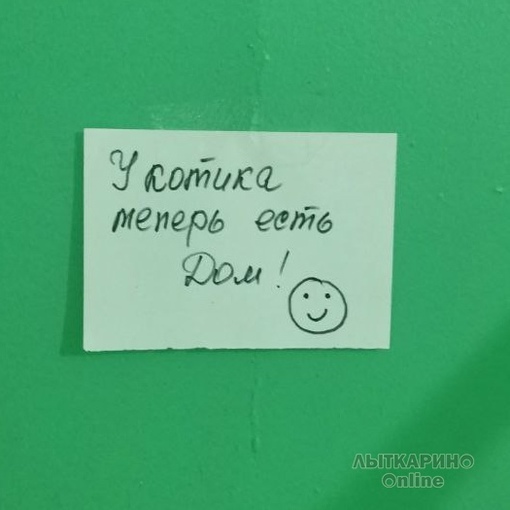 У котика
теперь есть
Дом!
ЛЫТКАРИНО
Online